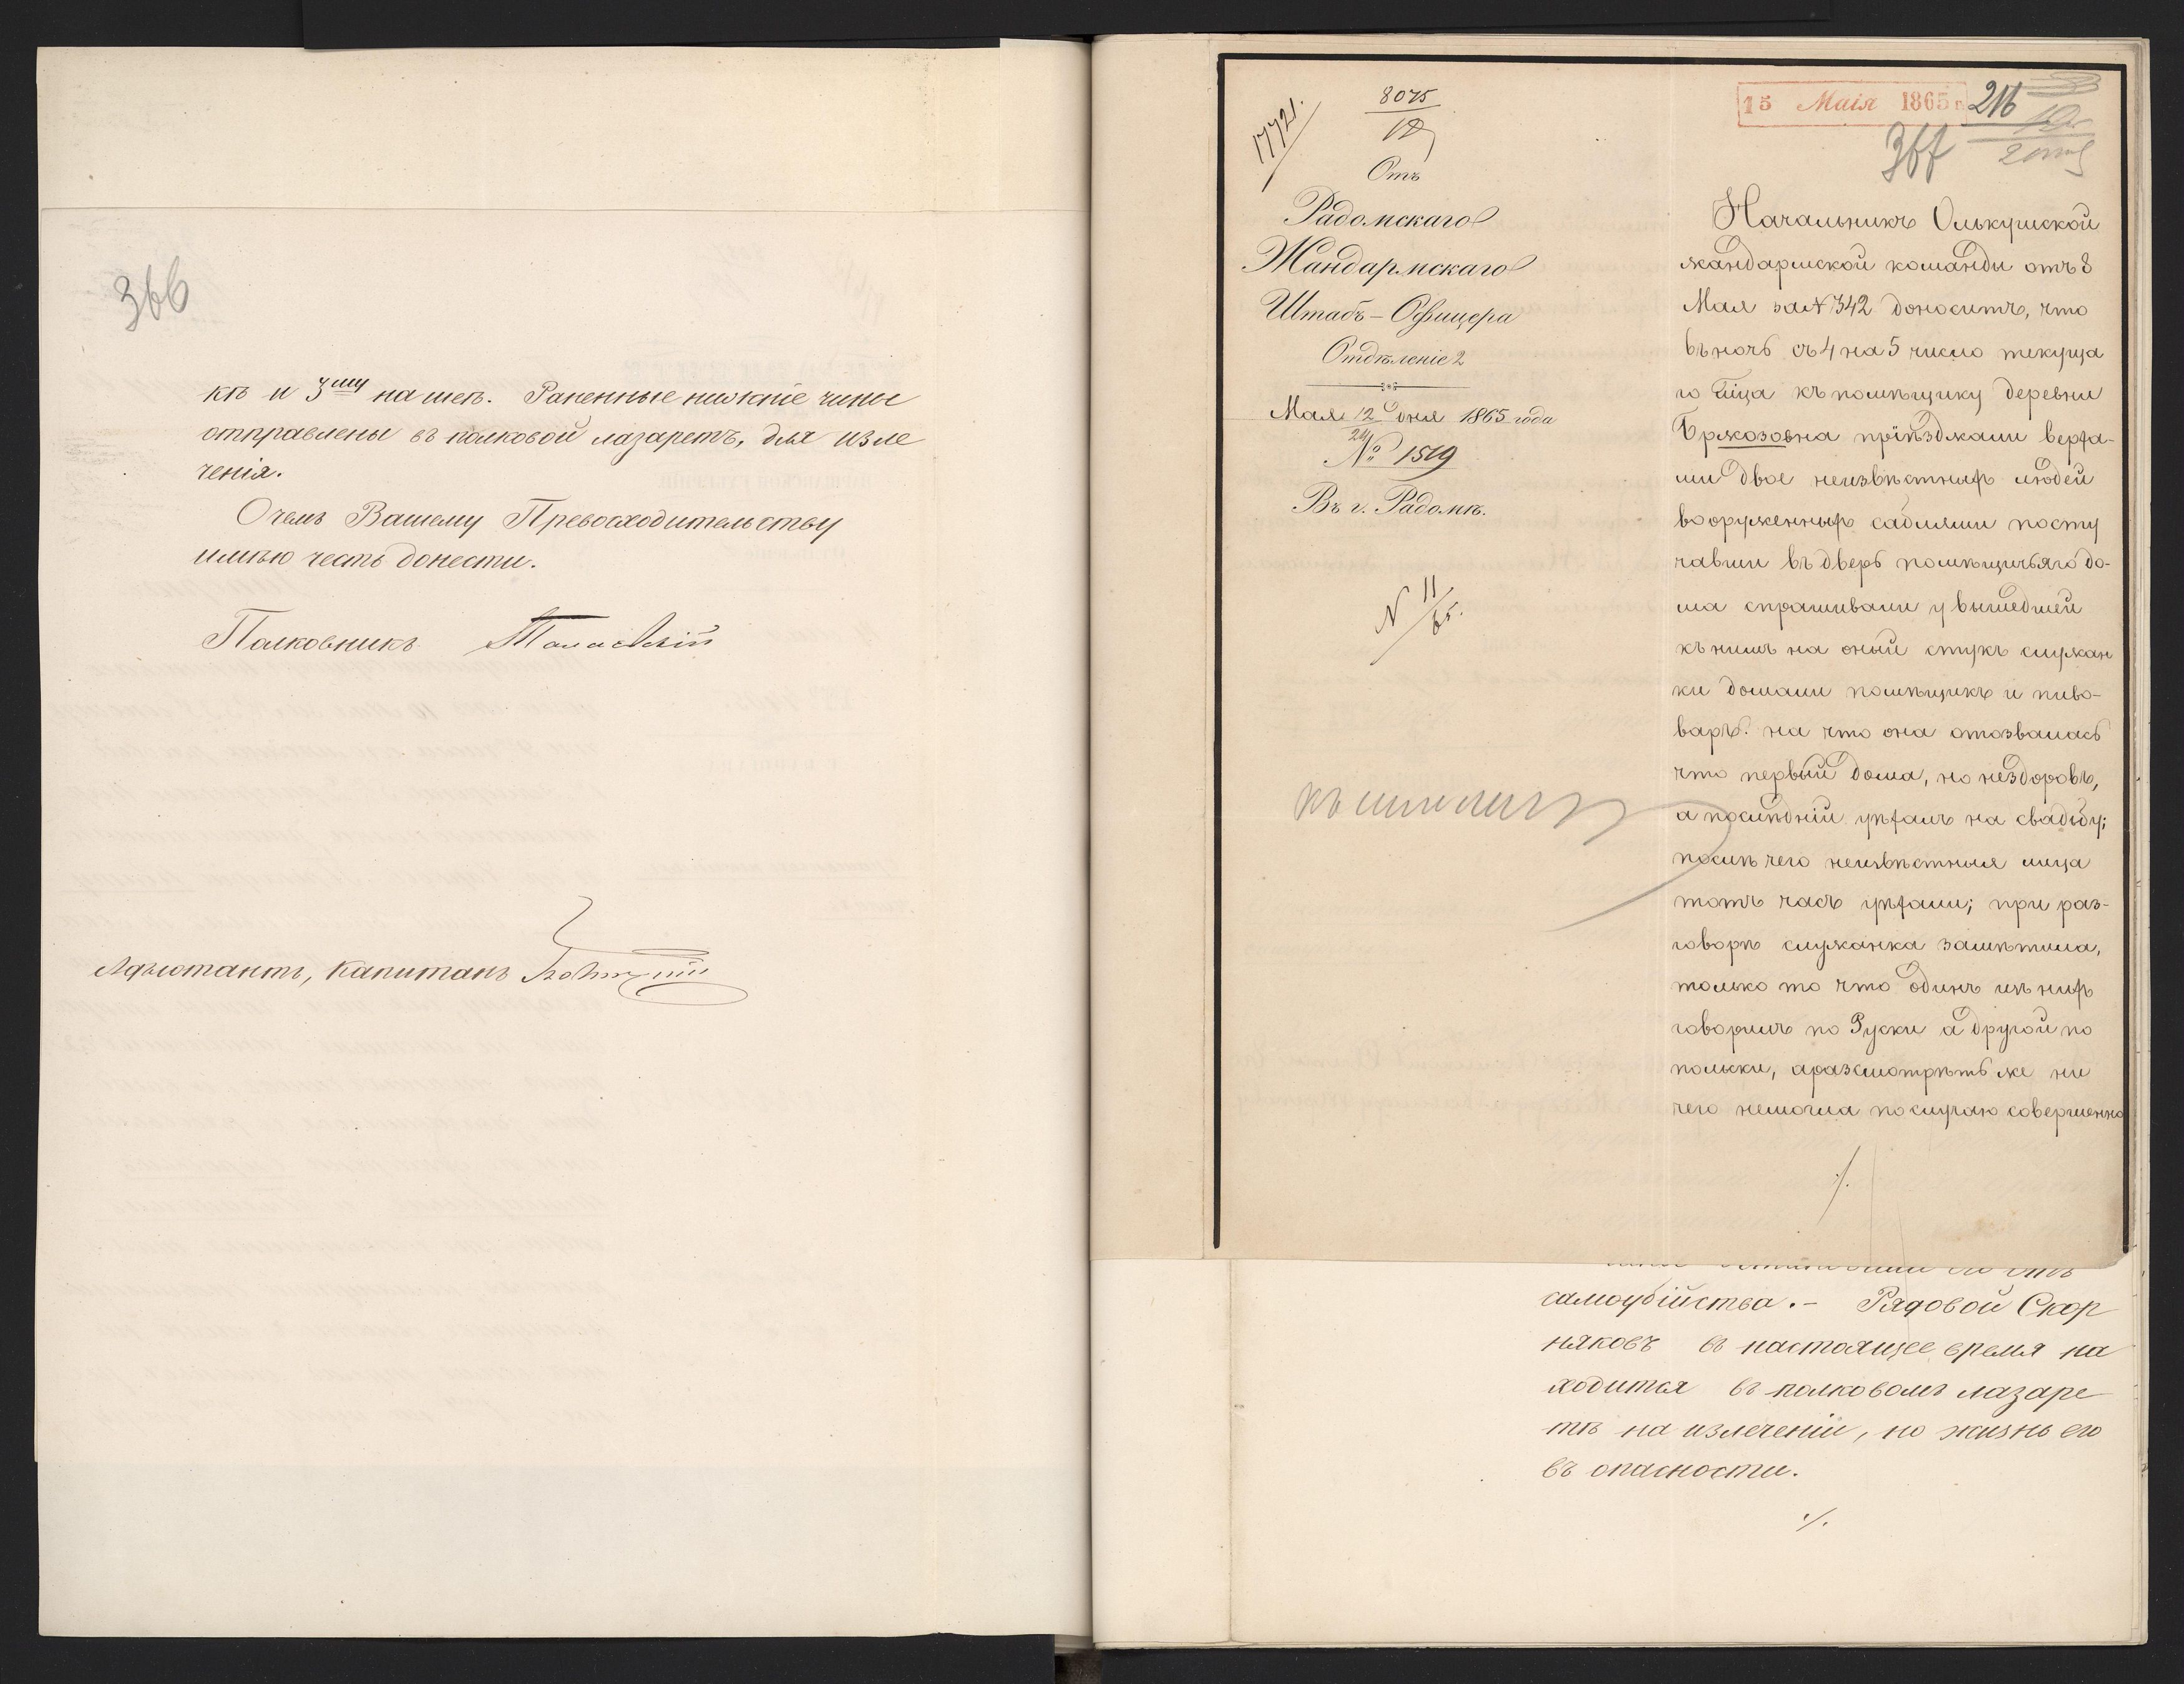 366
кѣ и 3му на шеѣ. Раненные нижніе чины
отправлены въ полковой лазаретъ, для изле
ченія.
О чемъ Вашему Превосходительству
имѣю честь донести.
Полковникъ
Адъютантъ, Капитанъ
17721.
8075
12
Отъ
Радомскаго
Жандармскаго
Штабъ-Офицера
Отдѣленіе 2
Мая 12/24 дня 1865 года
№ 1519
Въ г. Радомѣ.
N 11/65.
15 Маія 1865 г.
216
367
Начальникъ Олькушской
жандармской команды отъ 8
Мая за N 342 доноситъ, что
въ ночь съ 4 на 5 число текуща
го м҃ца къ помѣщику деревни
Бржозовна пріѣзжали верха-
ми двое неизвѣстныхъ людей
вооруженныхъ саблями посту
чавши въ дверь помѣщичьяго до-
ма спрашивали у вышедшей
къ нимъ на оный стукъ служан
ки домали помѣщикъ и пиво-
варъ. на что она отозвалась
что первый дома, но нездоровъ,
а послѣдній уѣхалъ на свадьбу;
послѣ чего неизвѣстныя лица
тотъ часъ уѣхали; при раз-
говорѣ служанка замѣтила,
только то что одинъ изъ нихъ
говорилъ по Руски а другой по
польски, а разсмотрѣть же ни
чего немогла по случаю совершенно
./.
самоубійства.- Рядовой Скор
няковъ въ настоящее время на
ходится въ полковомъ лазаре
тѣ на излеченіи, но жизнь его
въ опасности.
./.